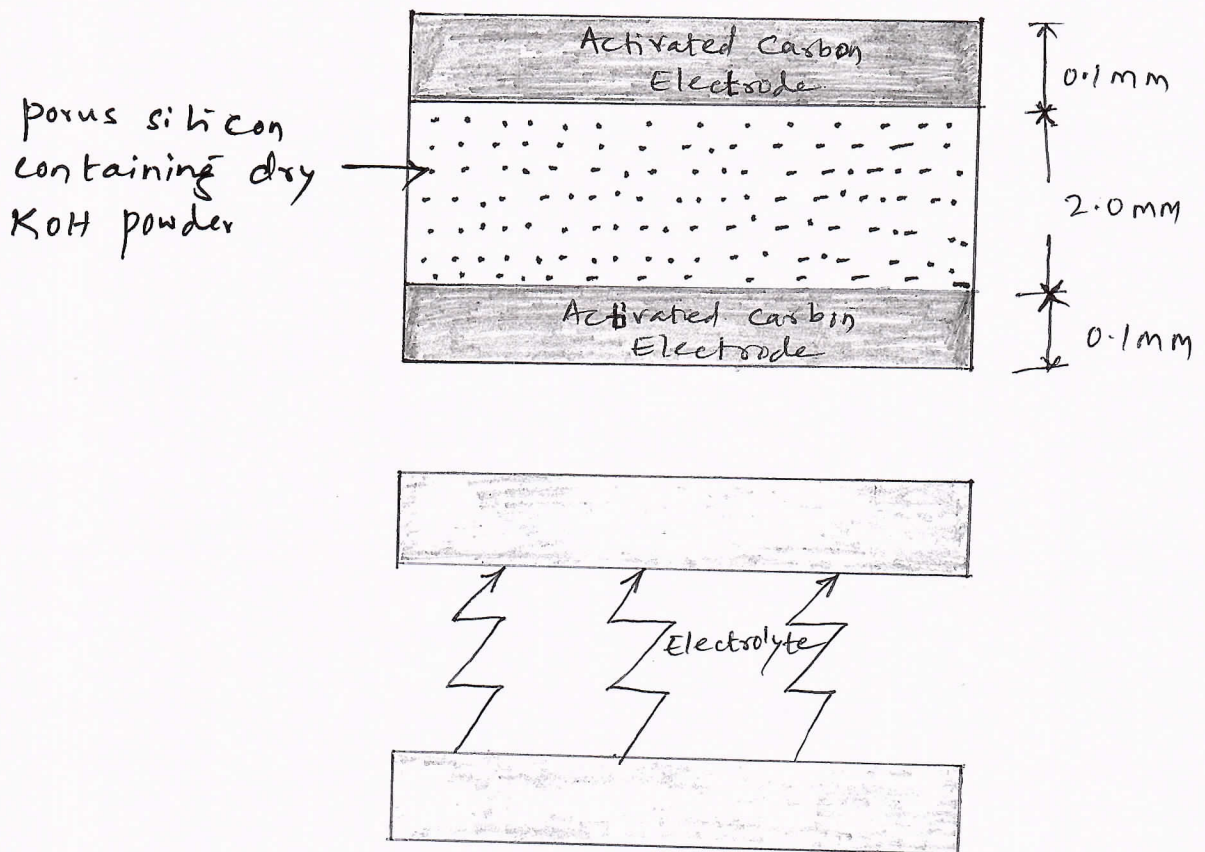 Activated Carbon
Electrode
0.1mm
porus silicon
containing dry
KOH powder
2.0mm
Activated carbon
Electrode
0.1mm
Electrolyte